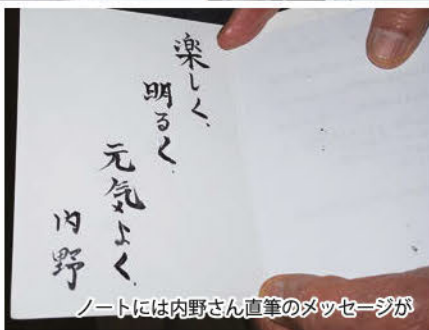 楽しく、
明るく、
元気よく、
内野
ノートには内野さん直筆のメッセージが